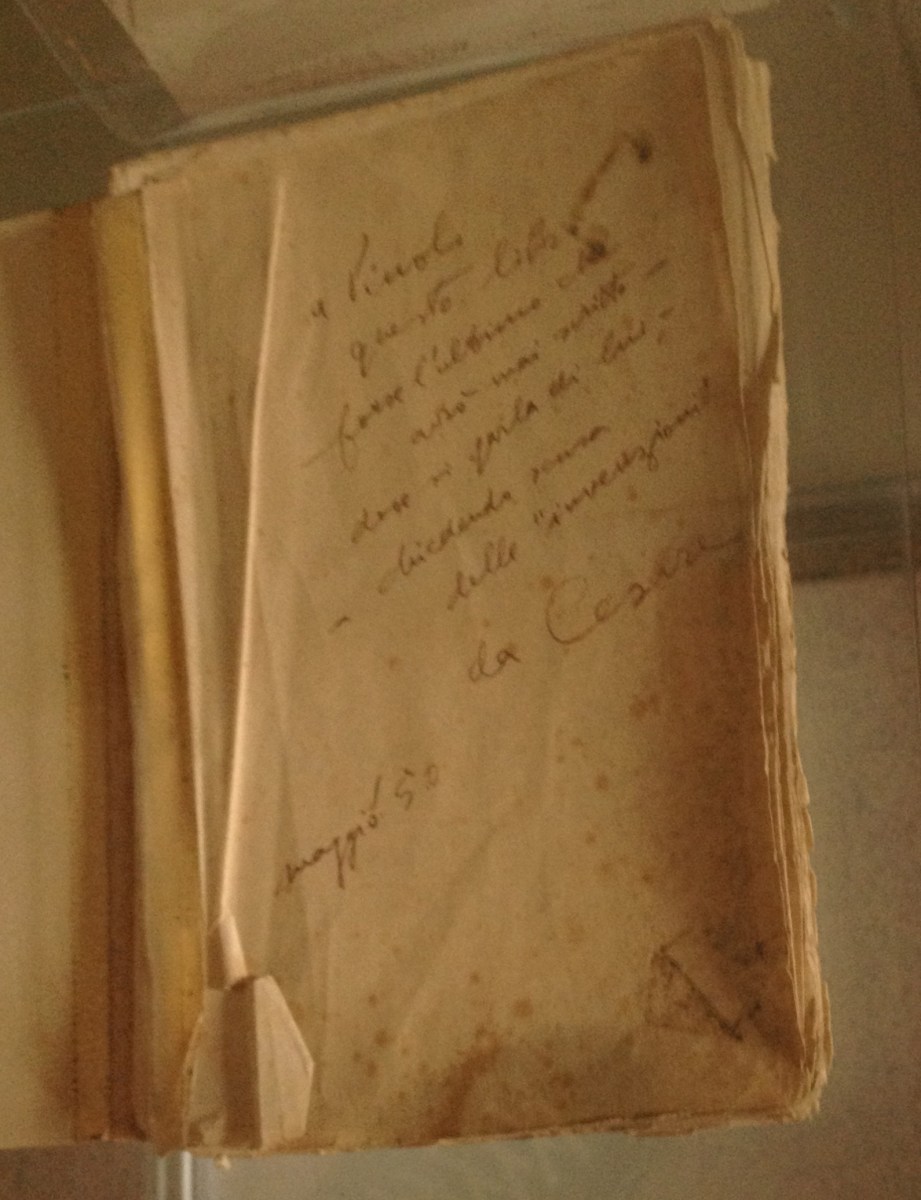 a Pinolo
questo libro
forse l'ultimo che
avrò mai scritto –
dove si parla di lui –
– chiedendo scusa
delle "invenzioni"
da Cesare
maggio '50